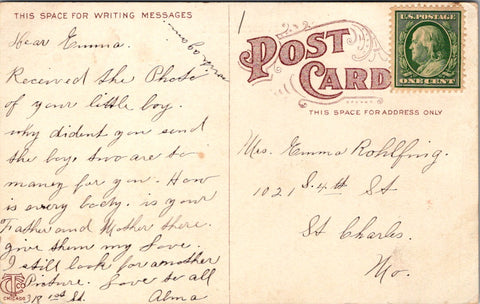 THIS SPACE FOR WRITING MESSAGES
Dear Emma.
Received the Photo
of your little boy.
why dident you send
the boy. two are to
maney for you. How
is every body. is your
Father and Mother there.
give them my love.
I still look for a mother
Picture. Love to all
Alma
again.
POST
CARD
U.S. POSTAGE
ONE CENT
THIS SPACE FOR ADDRESS ONLY
Mrs. Emma Rohlfing.
1021 S. 4th St
St Charles.
Mo.
CHICAGO